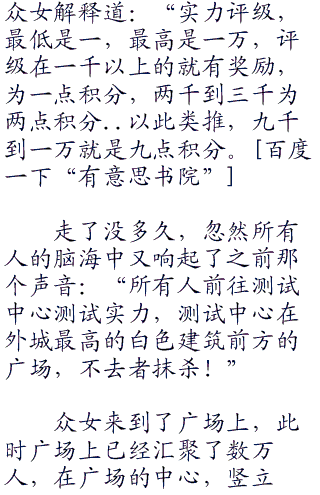 众女解释道：“实力评级，
最低是一，最高是一万，评
级在一千以上的就有奖励，
为一点积分，两千到三千为
两点积分..以此类推，九千
到一万就是九点积分。[百度
一下“有意思书院”]
走了没多久，忽然所有
人的脑海中又响起了之前那
个声音：“所有人前往测试
中心测试实力，测试中心在
外城最高的白色建筑前方的
广场，不去者抹杀！”
众女来到了广场上，此
时广场上已经汇聚了数万
人，在广场的中心，竖立